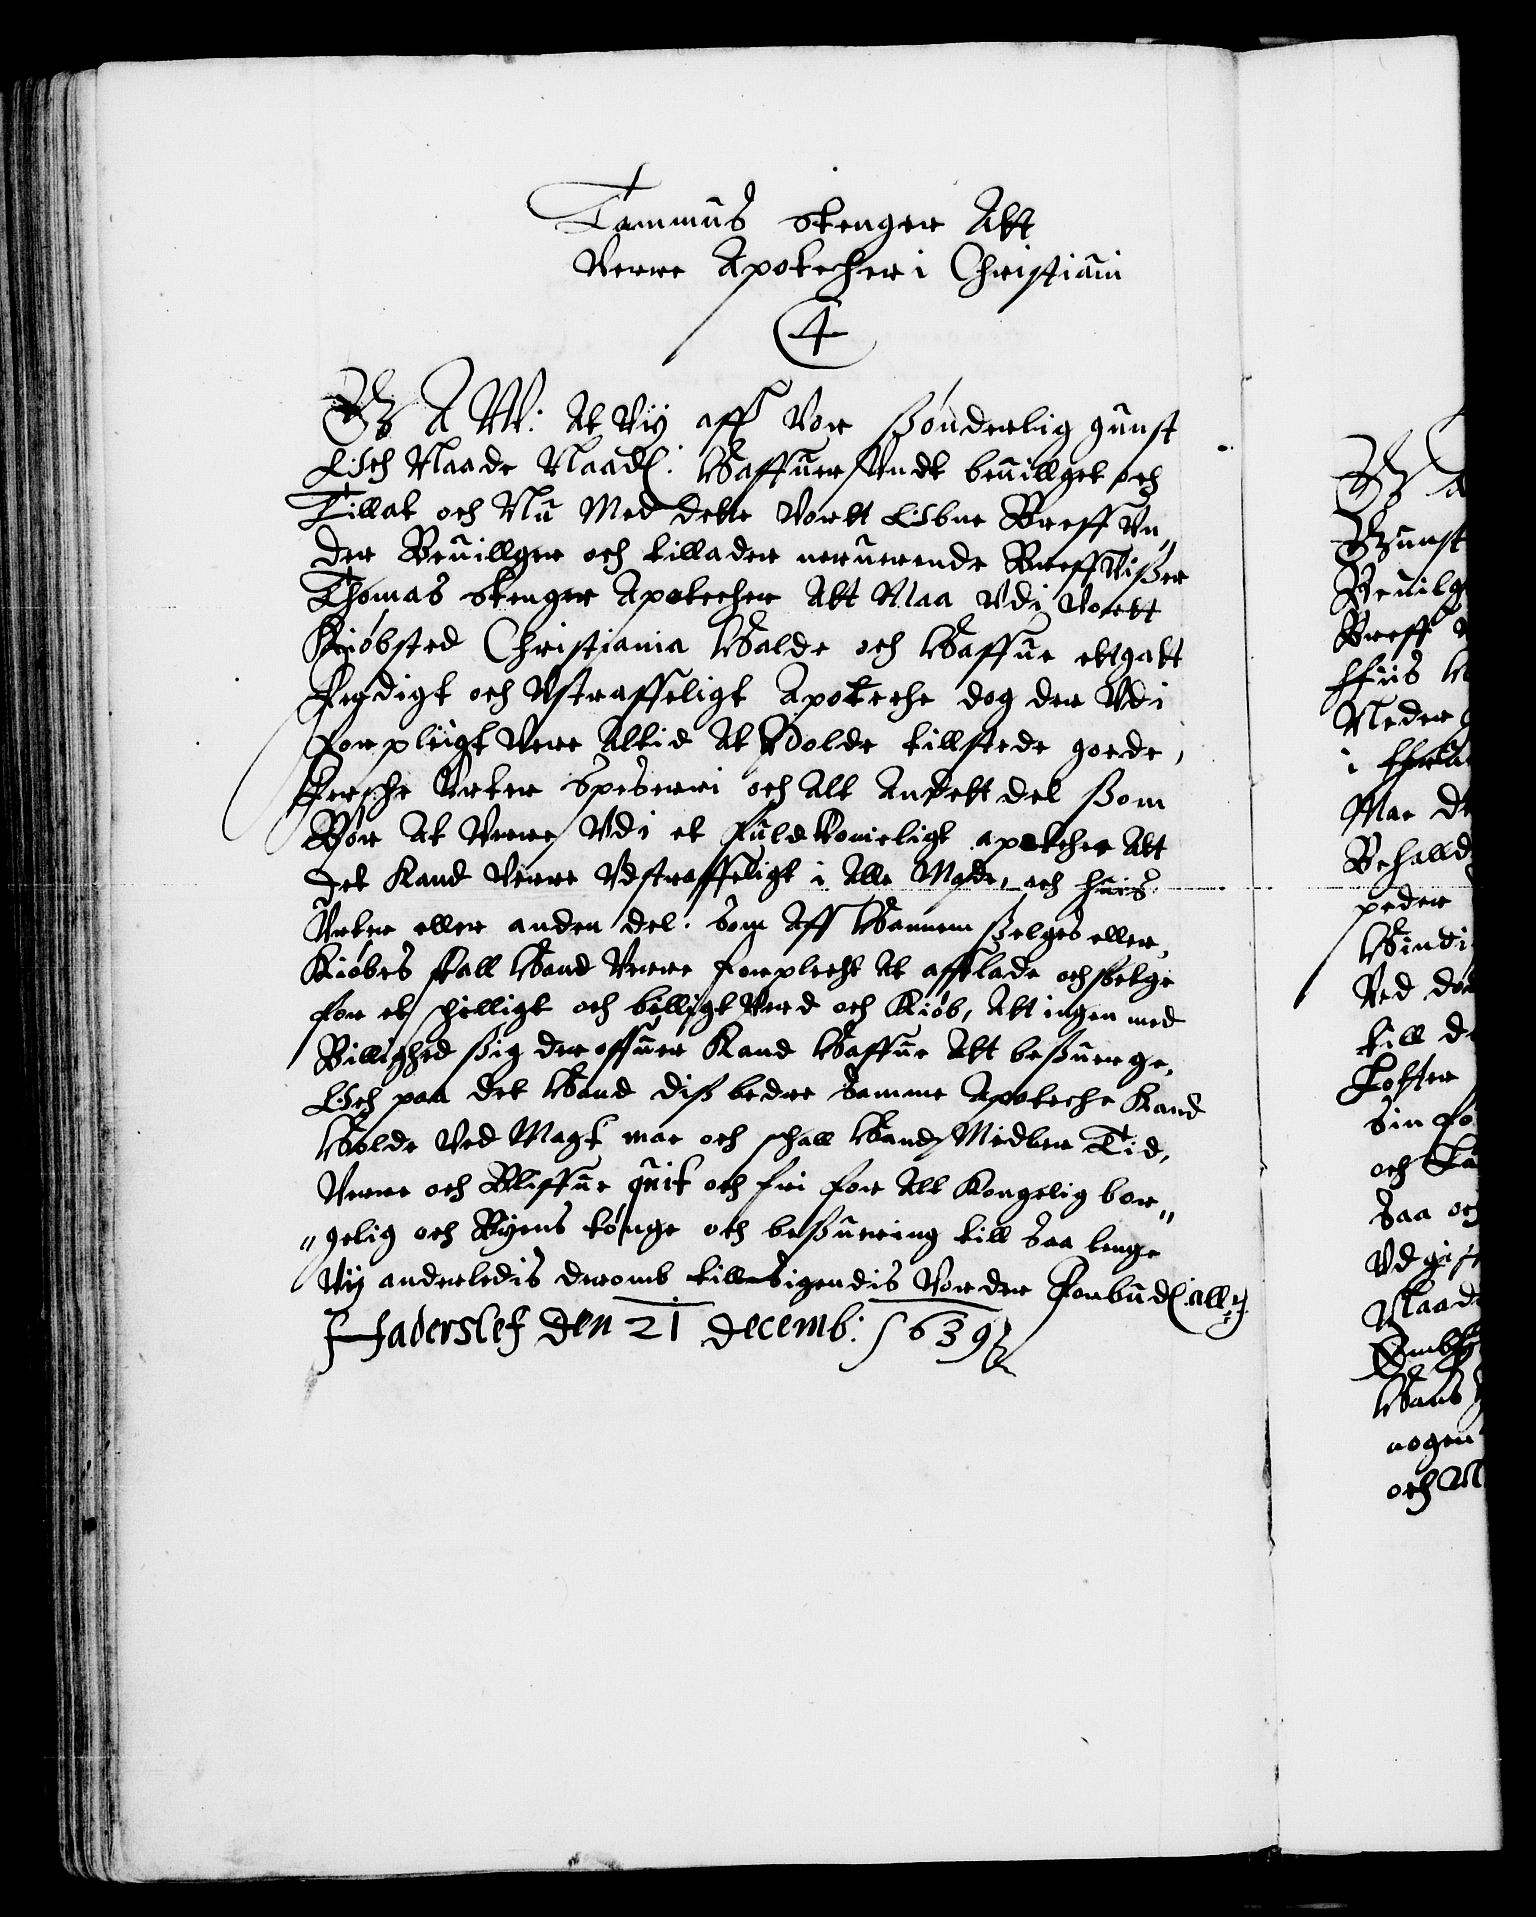 Tammus Stenger Att
Verre Apotecher i Christiani
4
G A W: At Vij aff Vor ßønderlig gunst
Och Naade Naadl: Haffuer Undt beuillget och
Tillat och Nu Med dette Vortt Obne Breff Un„
der Beuillger och tillader neruerende Breff Vißer
Thomas Stenger Apotecher Att Maa Vdi Vortt
Kiøbsted Christiania Holde och Haffue ettgatt
Fegdigt och Vstraffeligt Apoteche dog der Vdi
forpligt Vere Altid At Holde tillstede goede,
Fersche Urter Speserri och Alt Andett det ßom
Bør At Verre Vdi et fuldkomeligt apotecher Att
det Kand Verre Vdstraffeligt i Alle Maade, och huis
Urter eller anden del. Som Aff Hannem ßelges eller
Kiøbes skall Hand Verre forplicht At afflade och selge
for et schelligt och billigt Verd och Kiøb, Att ingen med
Billighed ßig der offuer Kand Haffue Att beßuerge,
Och paa det Hand diß bedre Samme Apoteche Kand
Holde Ved Magt maa och schall Hand Midler Tid,
Verre och Bliffue quit och fri for Alt Kongelig bor„
„gelig och Byens tønge och beßuering till Saa lenge
Vij anderledis deromb tillsigendis Vorder Forbudl: alle
Haderslef den 21 Decemb: 1639
G A
Gunst
Beuilg
Breff
Neder
i
Mae de
Behalld
peder
Hindi
Ved dø
till d
Sin fo
och
Saa och
Vdgif
Naad
Hans
nogen
och